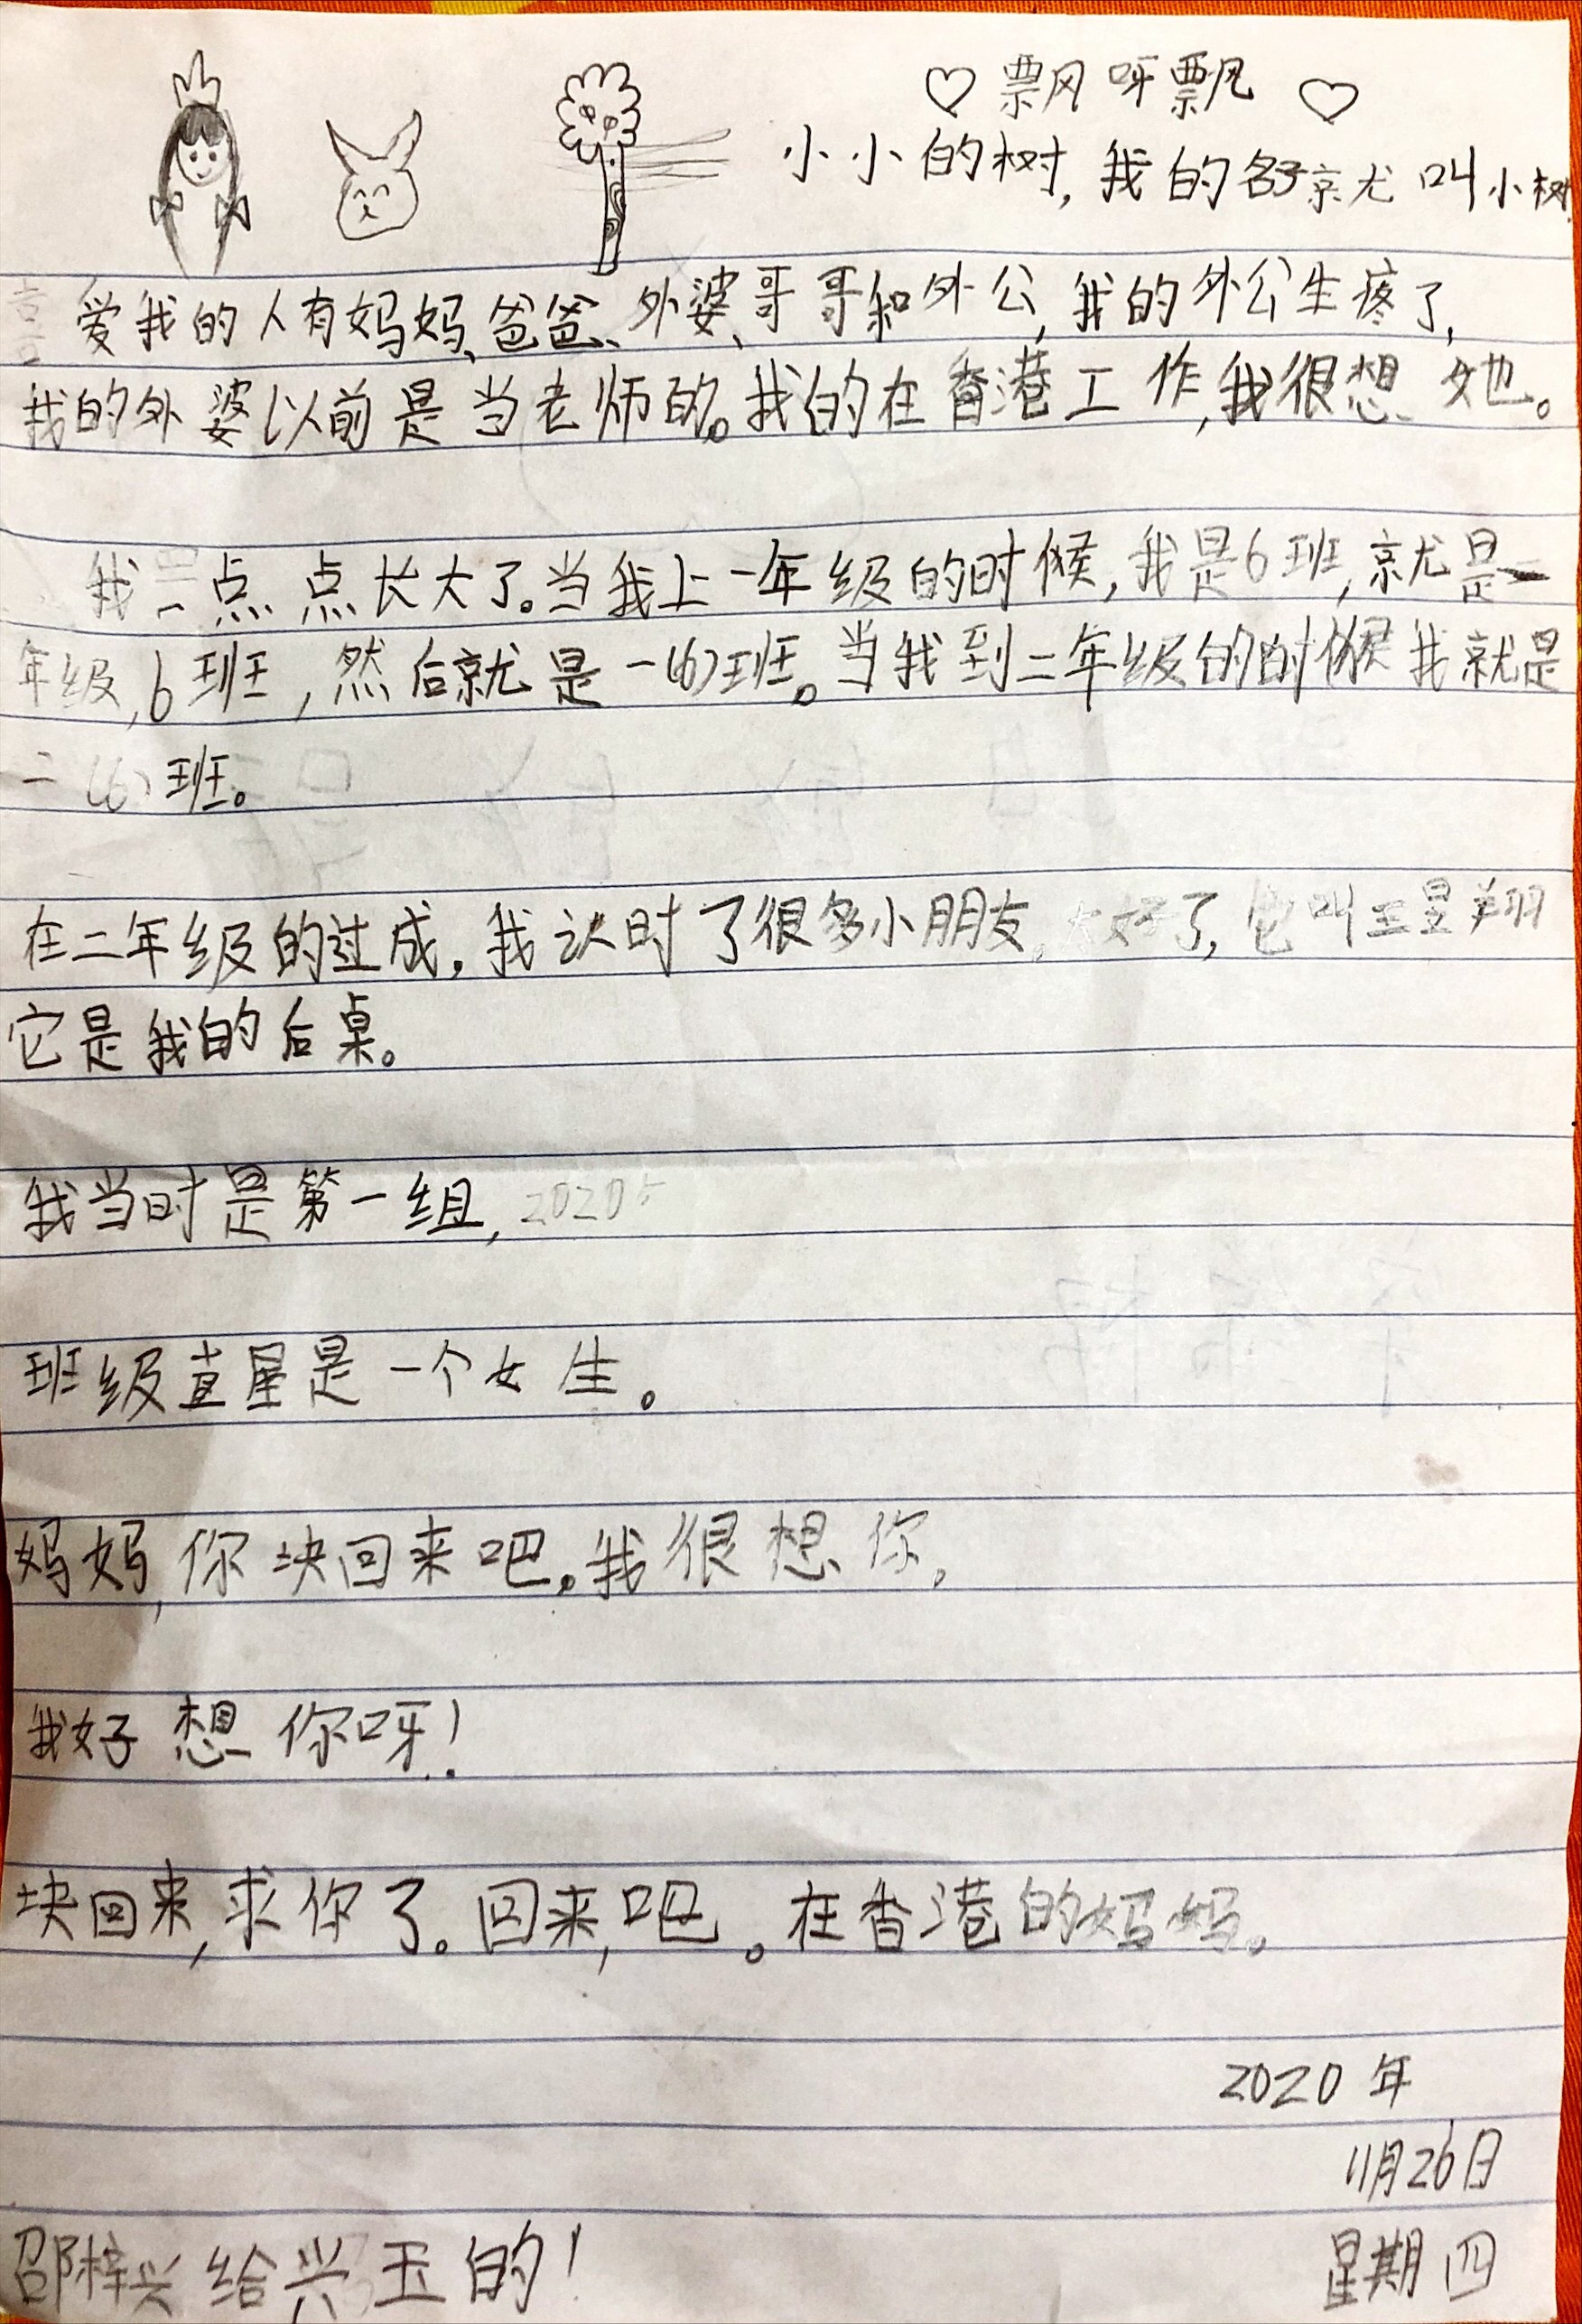 ♡ 飘呀飘 ♡
小小的树,我的名子京尤叫小树
爱我的人有妈妈、爸爸、外婆、哥哥和外公,我的外公生疼了,
我的外婆以前是当老师的。我的在香港工作,我很想她。
我一点点长大了。当我上一年级的时候,我是6班,京尤是一
年级,6班,然后就是一(6)班。当我到二年级的时候我就是
二(6)班。
在二年级的过成,我认时了很多小朋友。太好了,它叫王昱翔
它是我的后桌。
我当时是第一组,2020
班级直屋是一个女生。
妈妈,你块回来吧。我很想你。
我好想你呀!
块回来,求你了。回来,吧。在香港的妈妈。
2020年
11月26日
星期四
邵梓兴给兴玉的!